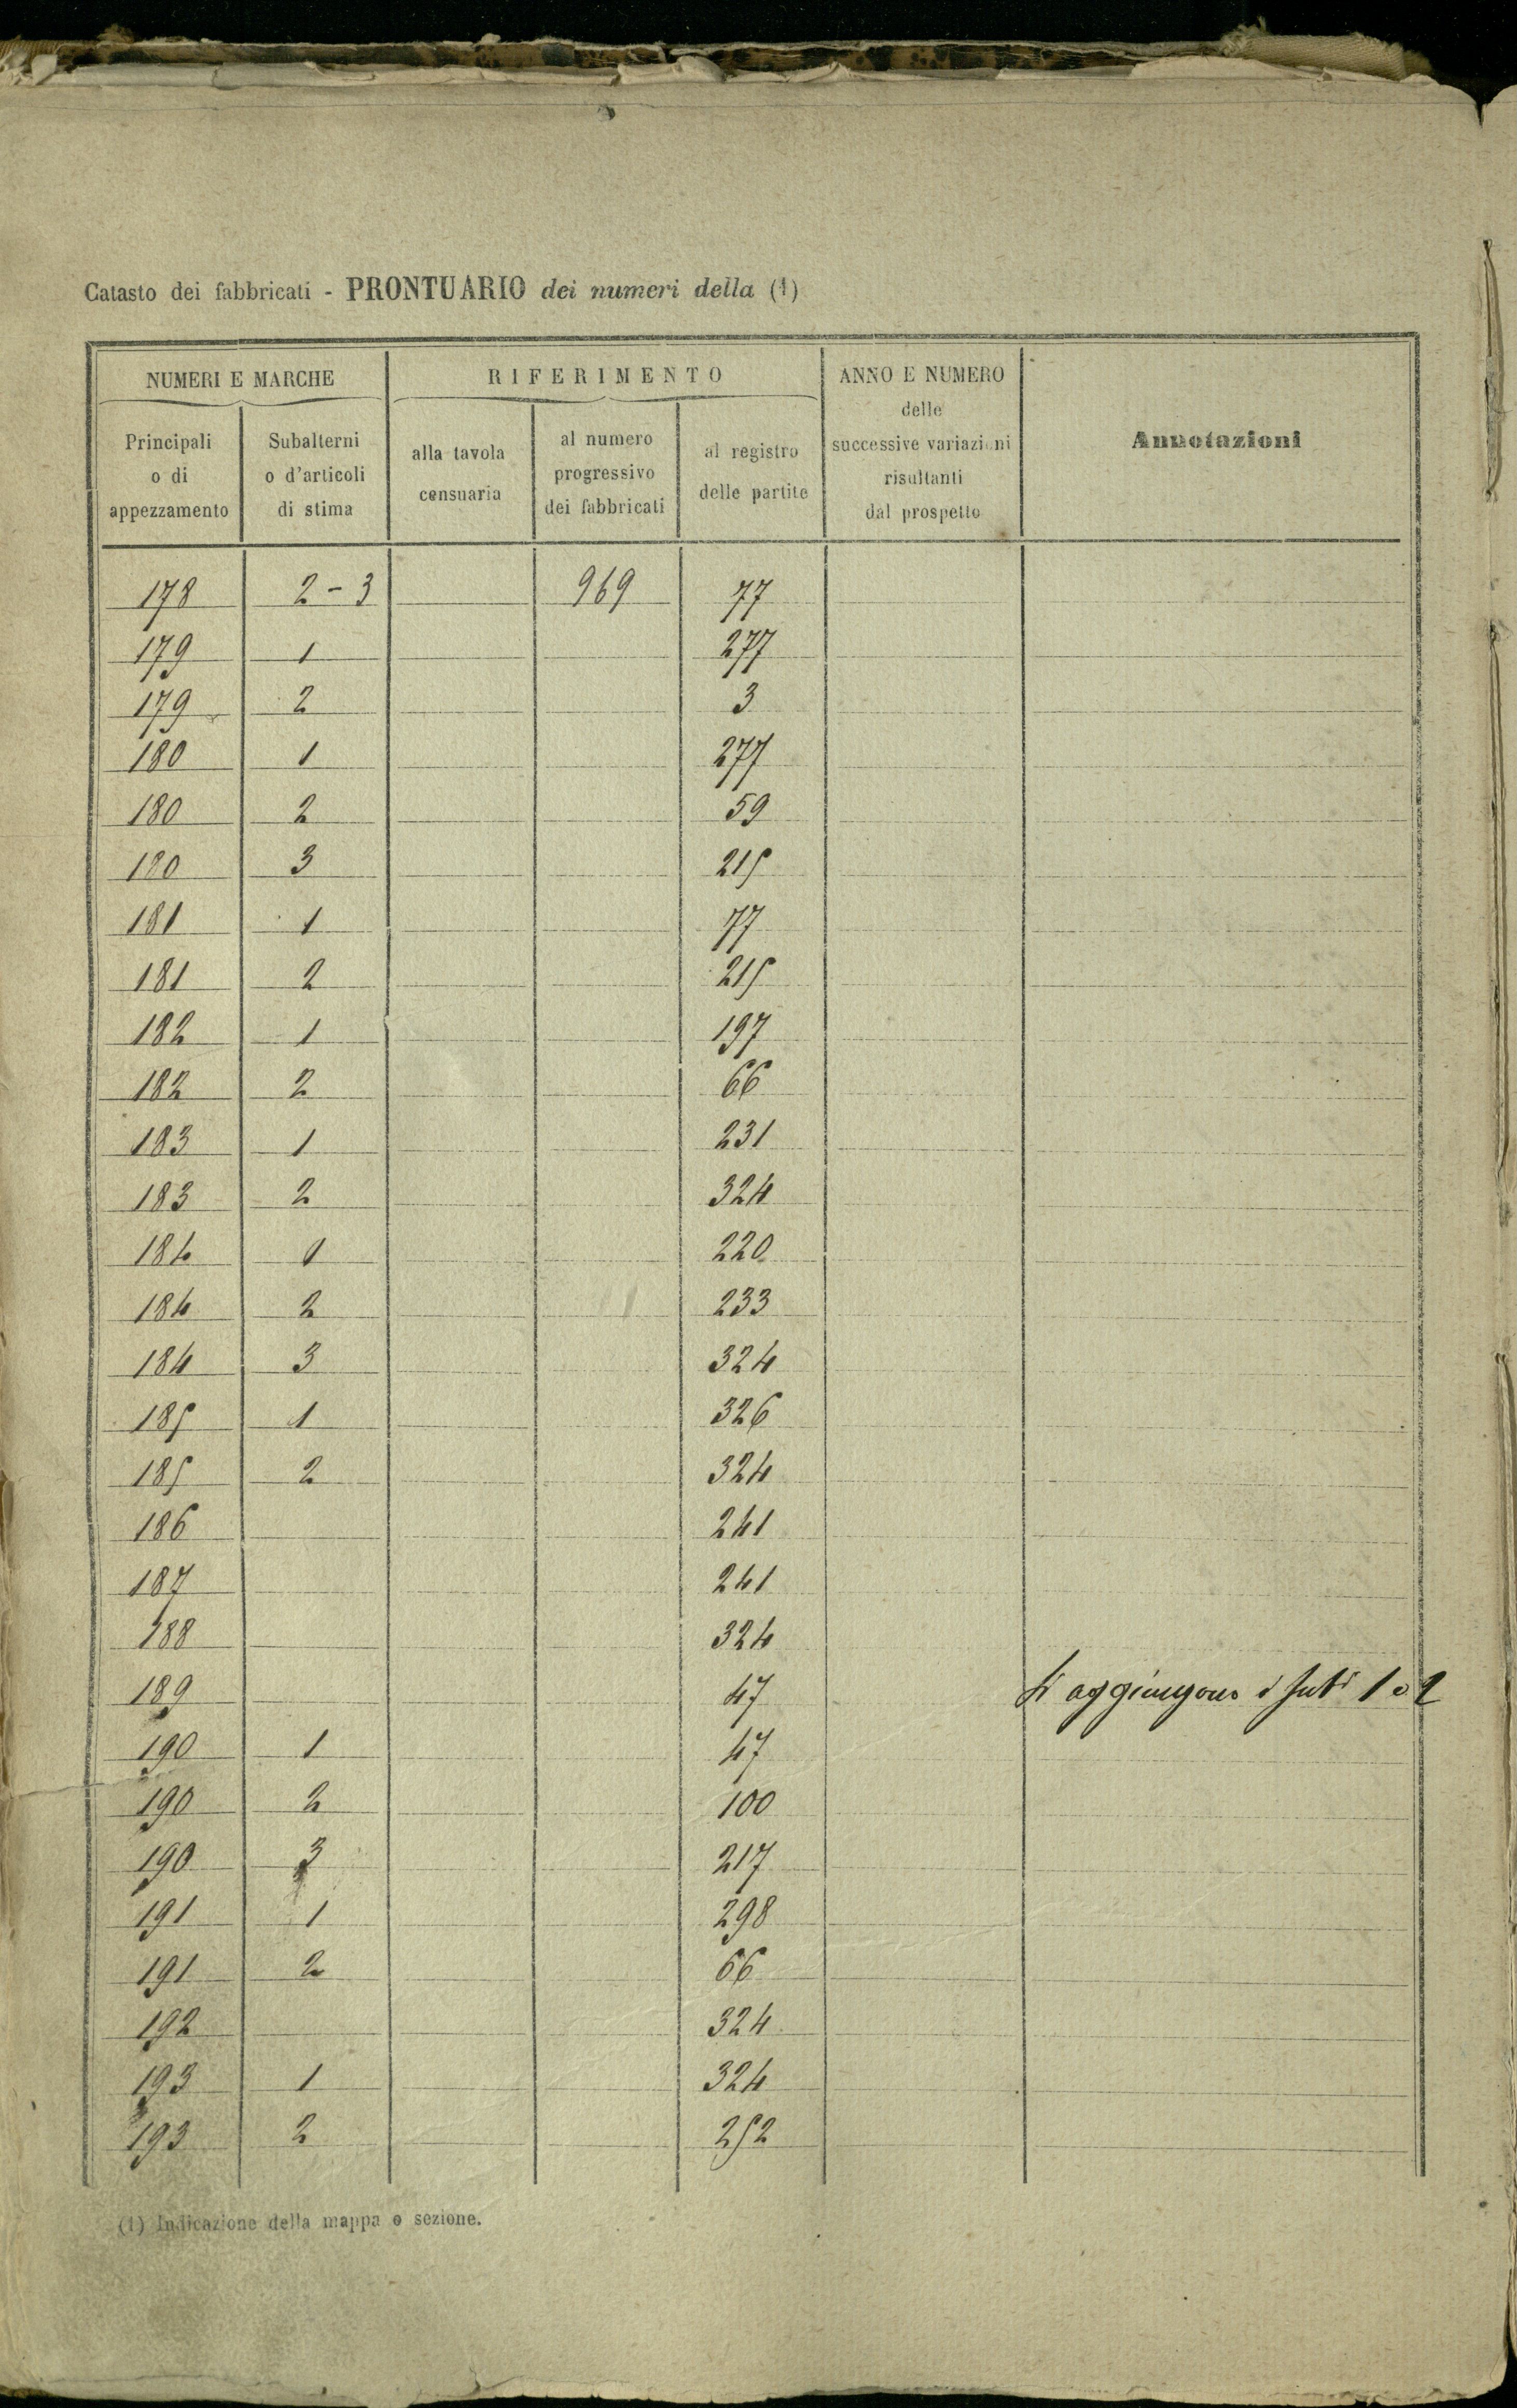 Catasto dei fabbricati - PRONTUARIO dei numeri della (1)
NUMERI E MARCHE
RIFERIMENTO
ANNO E NUMERO
delle
successive variazioni
risultanti
dal prospetto
Annotazioni
Principali
o di
appezzamento
Subalterni
o d'articoli
di stima
alla tavola
censuaria
al numero
progressivo
dei fabbricati
al registro
delle partite
178 2-3 969 77
179 1 277
179 2 3
180 1 277
180 2 59
180 3 215
181 1 77
181 2 215
182 1 197
182 2 66
183 1 231
183 2 324
184 1 220
184 2 233
184 3 324
185 1 326
185 2 324
186 241
187 241
188 324
189 47 Si aggiungono i sub i 1 2
190 1 47
190 2 100
190 3 217
191 1 298
191 2 66
192 324
193 1 324
193 2 252
(1) Indicazione della mappa o sezione.